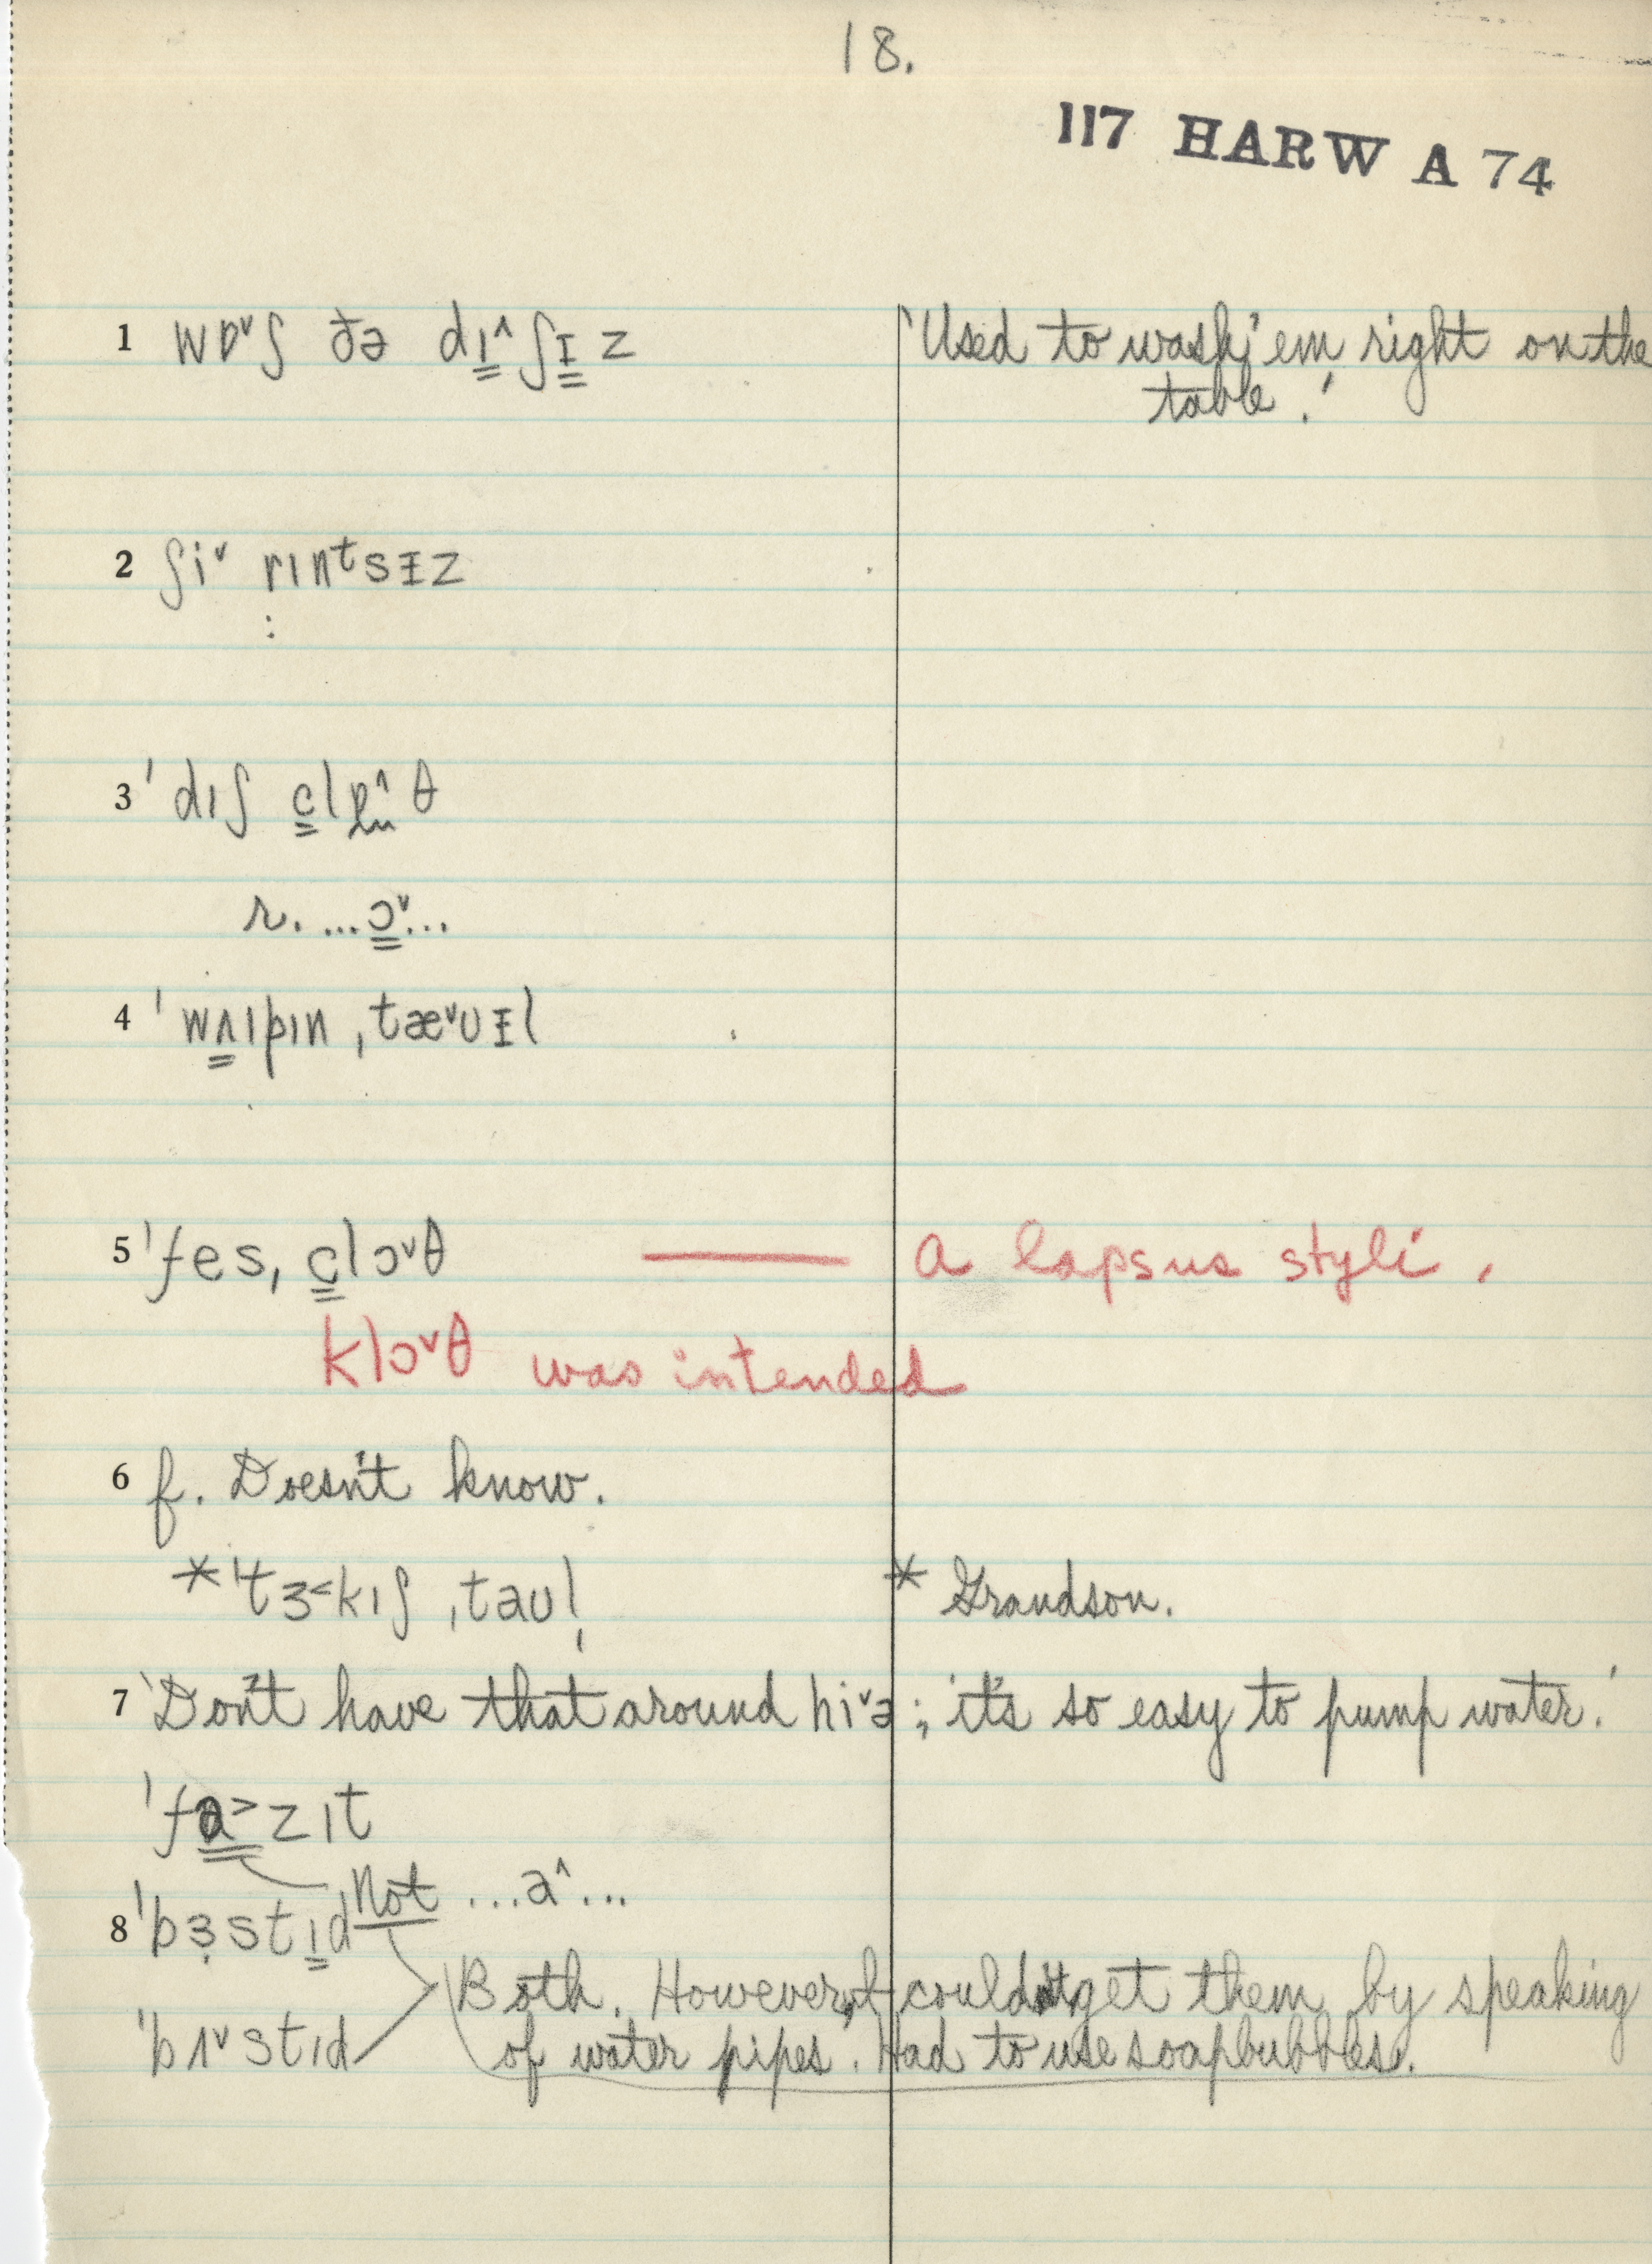 18.
117 HARW A 74
1 wɒ˅ʃ ðə dɪ˄ʃɨz 'Used to wash 'em right on the
table.'
2 ʃi˅ rɪnᵗsɨz
:
3 'dɪʃ clɒ˄θ
r. ...ɔ˅...
4 'wʌɪpɪn ˌtæ˅ʊɨl
5 'fes, clɔ˅θ —— A lapsus styli.
klɔ˅θ was intended
6 f. Doesn't know.
*'tɜ˂kɪʃ ˌtaʊl̩ * Grandson.
7 'Don't have that around hi˅ə; it's so easy to pump water.'
'fɑ˃zɪt
Not ...a˄...
8 'bɜ̣stɪd
Both. However, f. couldn't get them by speaking
'bʌ˅stɪd of water pipes. Had to use soapbubbles.